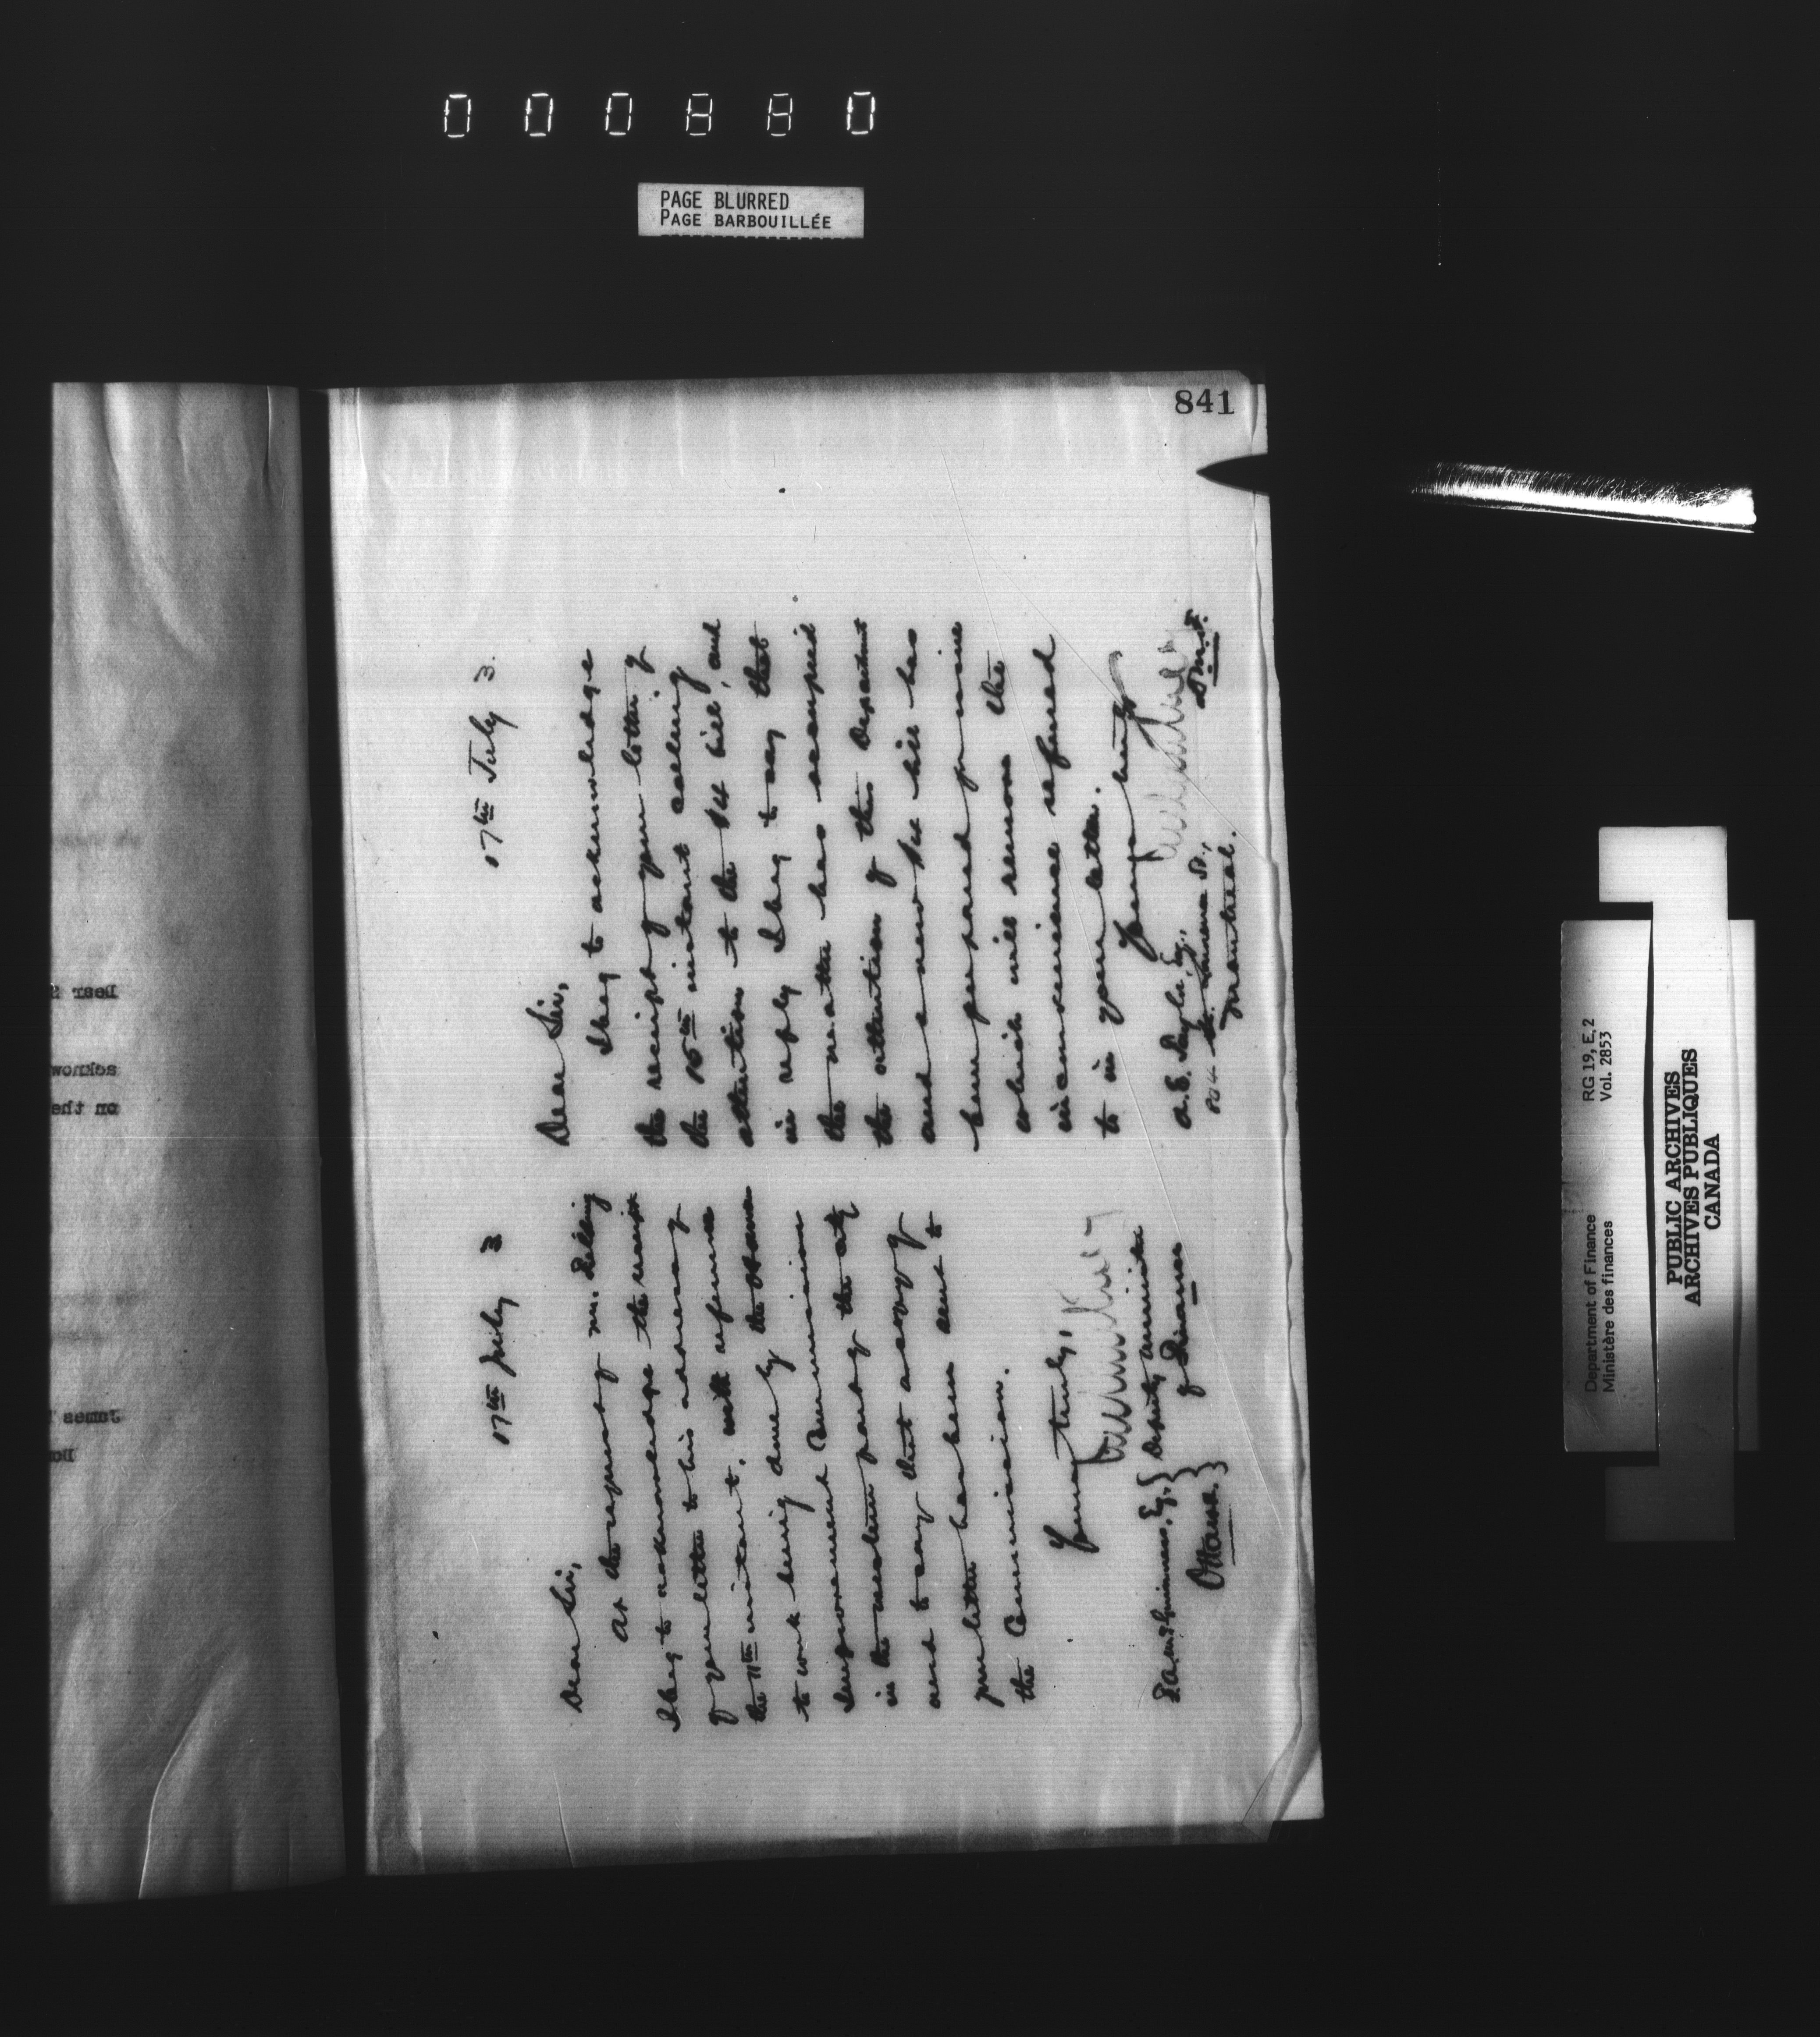 000880
PAGE BLURRED
PAGE BARBOUILLÉE
841
17th July 3
Dear Sir,
At the request of Mr. Fielding
I beg to acknowledge the receipt
of your letter to his address of
the 11th instant, with reference
to work being done by the Ottawa
Improvement Commission
in the western part of the city
and to say that a copy of
your letter has been sent to
the Commission.
Yours truly,
Esq., } Deputy Minister
Ottawa. } of Finance
17th July 3.
Dear Sir,
I beg to acknowledge
the receipt of your letter of
the 15th instant calling
attention to the $4 bill, and
in reply I beg to say that
the matter has occupied
the attention of this Department
and a new $4 bill has
been prepared for issue
which will remove the
inconvenience referred
to in your letter.
Yours truly
A. E. Esq.,
St. Lawrence St.,
D.M.F.
Montreal.
Dear
acknow
on the
James
Department of Finance RG 19, E, 2
Ministère des finances Vol. 2853
PUBLIC ARCHIVES
ARCHIVES PUBLIQUES
CANADA